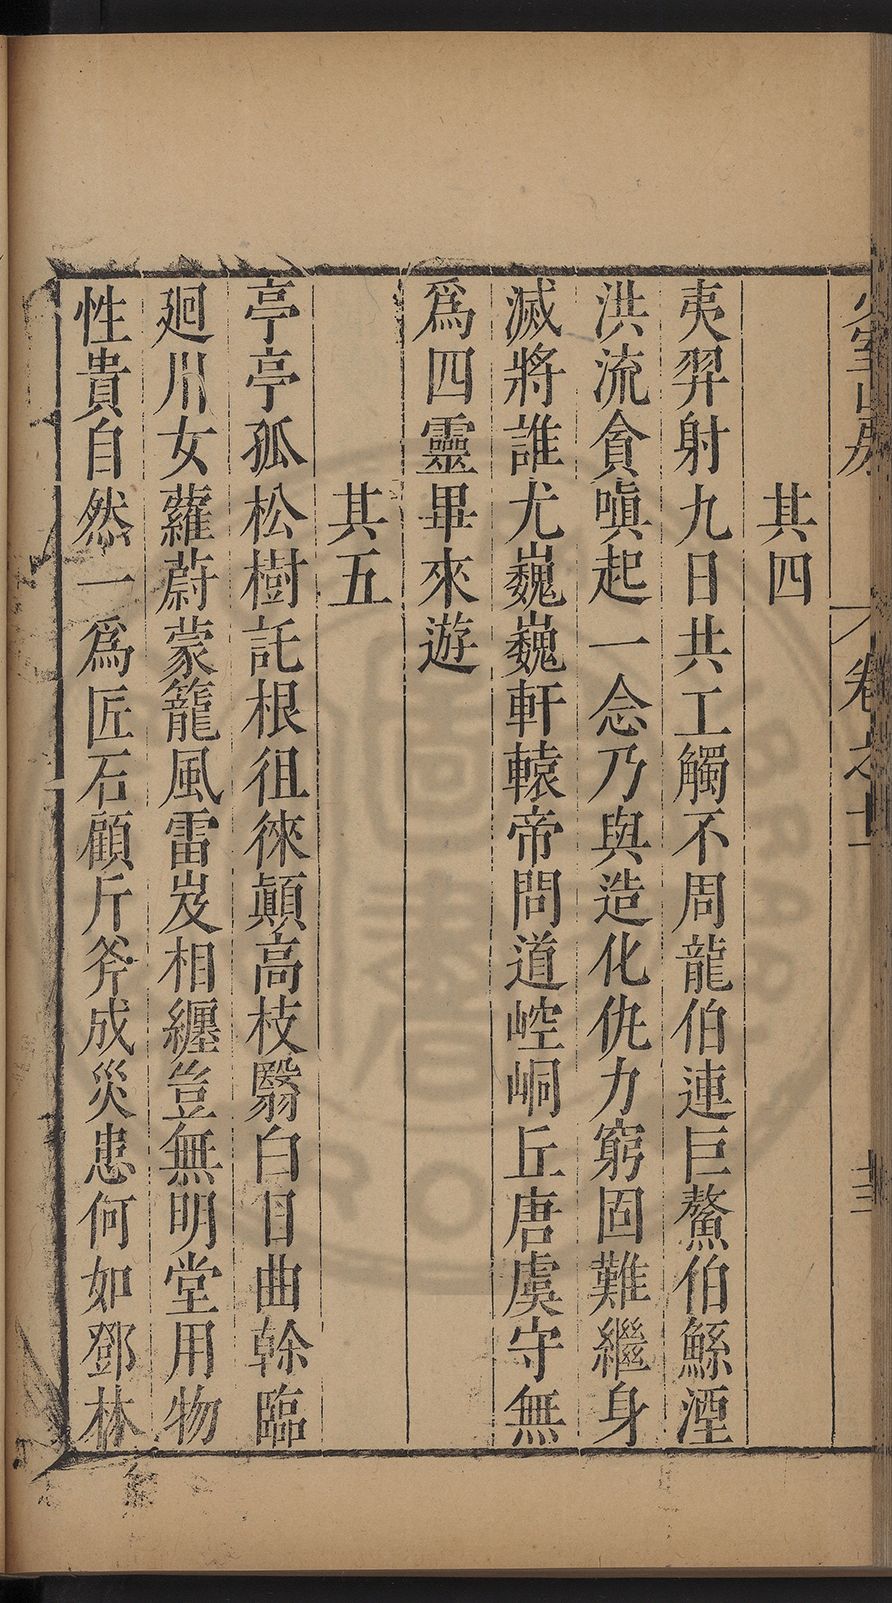 少室山房 卷之十 十三
其四
夷羿射九日共工觸不周龍伯連巨鰲伯鯀湮
洪流貪嗔起一念乃與造化仇力窮固難繼身
滅將誰尤巍巍軒轅帝問道崆峒丘唐虞守無
爲四靈畢來遊
其五
亭亭孤松樹託根徂徠顛高枝翳白日曲榦臨
廻川女蘿蔚蒙籠風雷岌相纏豈無明堂用物
性貴自然一爲匠石顧斤斧成災患何如鄧林